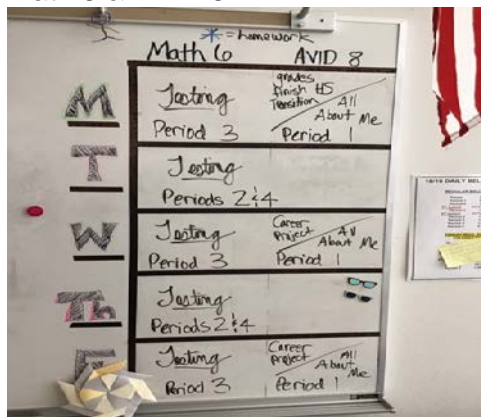 * = homework
Math 6 AVID 8
M
Testing
Period 3
grades
Finish HS
Transition
All
About Me
Period 1
T
Testing
Periods 2 & 4
W
Testing
Period 3
Career
Project
All
About Me
Period 1
Th
Testing
Periods 2 & 4
F
Testing
Period 3
Career
Project
All
About Me
Period 1
18/19 DAILY BEL